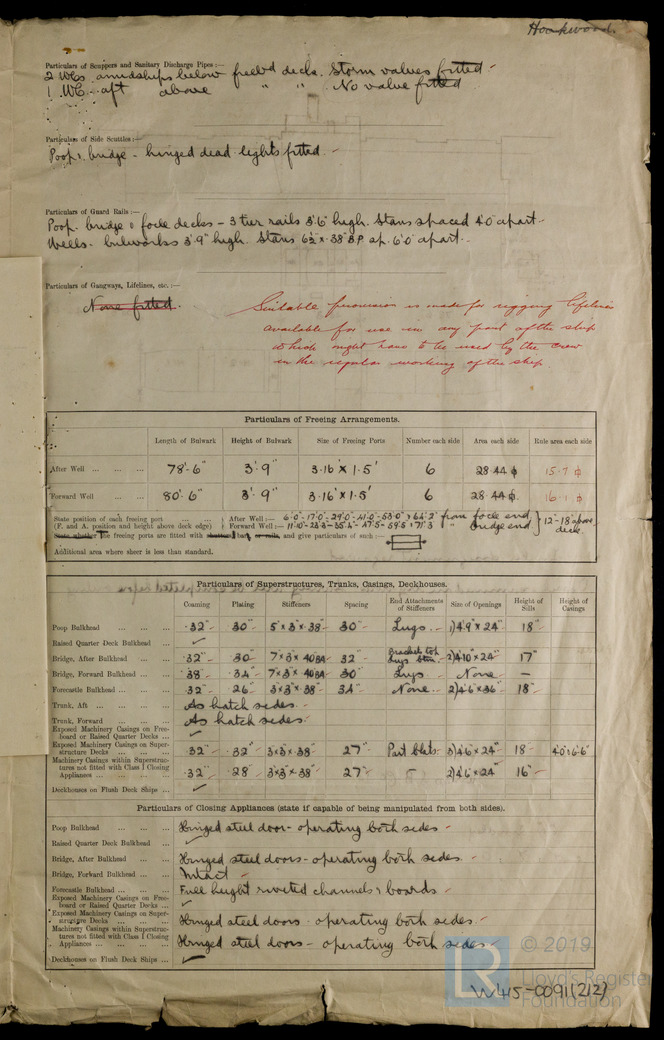 Hookwood.
Particulars of Scuppers and Sanitary Discharge Pipes :—
2 WCs amidships below freebd deck. Storm valves fitted
1 WC aft above " " No valve fitted
Particulars of Side Scuttles :—
Poop & bridge - hinged dead lights fitted
Particulars of Guard Rails :—
Poop bridge & focle decks - 3 tier rails 3'6" high. Stans spaced 4'0 apart
Wells - bulwarks 3'9" high. Stans 6½ x .38 BP sp. 6'0 apart.
Particulars of Gangways, Lifelines, etc. :—
None fitted.
Suitable provision is made for rigging lifelines
available for use in any part of the ship
which might have to be used by the crew
in the regular working of the ship.
Particulars of Freeing Arrangements.
Length of Bulwark Height of Bulwark Size of Freeing Ports Number each side Area each side Rule area each side
After Well ... ... ... 78'-6" 3'9" 3.16' x 1.5' 6 28.44 ϕ 15.7 ϕ
Forward Well ... ... 80'6" 3'-9" 3.16' x 1.5' 6 28.44 ϕ 16.1 ϕ
State position of each freeing port ... ... After Well :— 6'0"-17'0"-29'0"-41'0-53'0" & 64'2" from focle end
(F. and A. position and height above deck edge) Forward Well :— 11'10"-23'3-35'4"-47'5-59'5 & 71'3 " bridge end 12"-18 above deck.
State whether the freeing ports are fitted with shutters, bars, or rails, and give particulars of such :—
Additional area where sheer is less than standard.
Particulars of Superstructures, Trunks, Casings, Deckhouses.
Coaming Plating Stiffeners Spacing End Attachments of Stiffeners Size of Openings Height of Sills Height of Casings
Poop Bulkhead ... ... ... .32" .30" 5"x3"x.38 30" Lugs 1) 4'9"x24" 18"
Raised Quarter Deck Bulkhead ... ✓
Bridge, After Bulkhead ... ... .32" .30 7"x3"x.40 BA 32" Bracket top Lugs btm. 2) 4'10"x24" 17"
Bridge, Forward Bulkhead ... ... .38 .34" 7"x3"x.40 BA 30" Lugs None —
Forecastle Bulkhead ... ... ... .32" .26" 3"x3"x.38" 34 None 2) 4'6"x36" 18"
Trunk, Aft ... ... ... ... As hatch sides.
Trunk, Forward ... ... ... As hatch sides
Exposed Machinery Casings on Free-
board or Raised Quarter Decks ... ✓
Exposed Machinery Casings on Super-
structure Decks ... ... ... .32" .32" 3x3x.38 27" Part blkts 3) 4'6"x24" 18 4'0 & 6'6"
Machinery Casings within Superstruc-
tures not fitted with Class I Closing
Appliances ... ... ... ... .32" .28 3x3x.38 27" 2) 4'6"x24" 16"
Deckhouses on Flush Deck Ships ... ✓
Particulars of Closing Appliances (state if capable of being manipulated from both sides).
Poop Bulkhead ... ... ... Hinged steel door - operating both sides
Raised Quarter Deck Bulkhead ... ✓
Bridge, After Bulkhead ... ... Hinged steel doors - operating both sides
Bridge, Forward Bulkhead ... ... Intact
Forecastle Bulkhead ... ... ... Full height riveted channels & boards
Exposed Machinery Casings on Free-
board or Raised Quarter Decks ... ✓
Exposed Machinery Casings on Super-
structure Decks ... ... ... Hinged steel doors - operating both sides
Machinery Casings within Superstruc-
tures not fitted with Class I Closing
Appliances ... ... ... ... Hinged steel doors - operating both sides
Deckhouses on Flush Deck Ships ... ✓
LR © 2019
Lloyd's Register
Foundation
W415-0091(2/2)